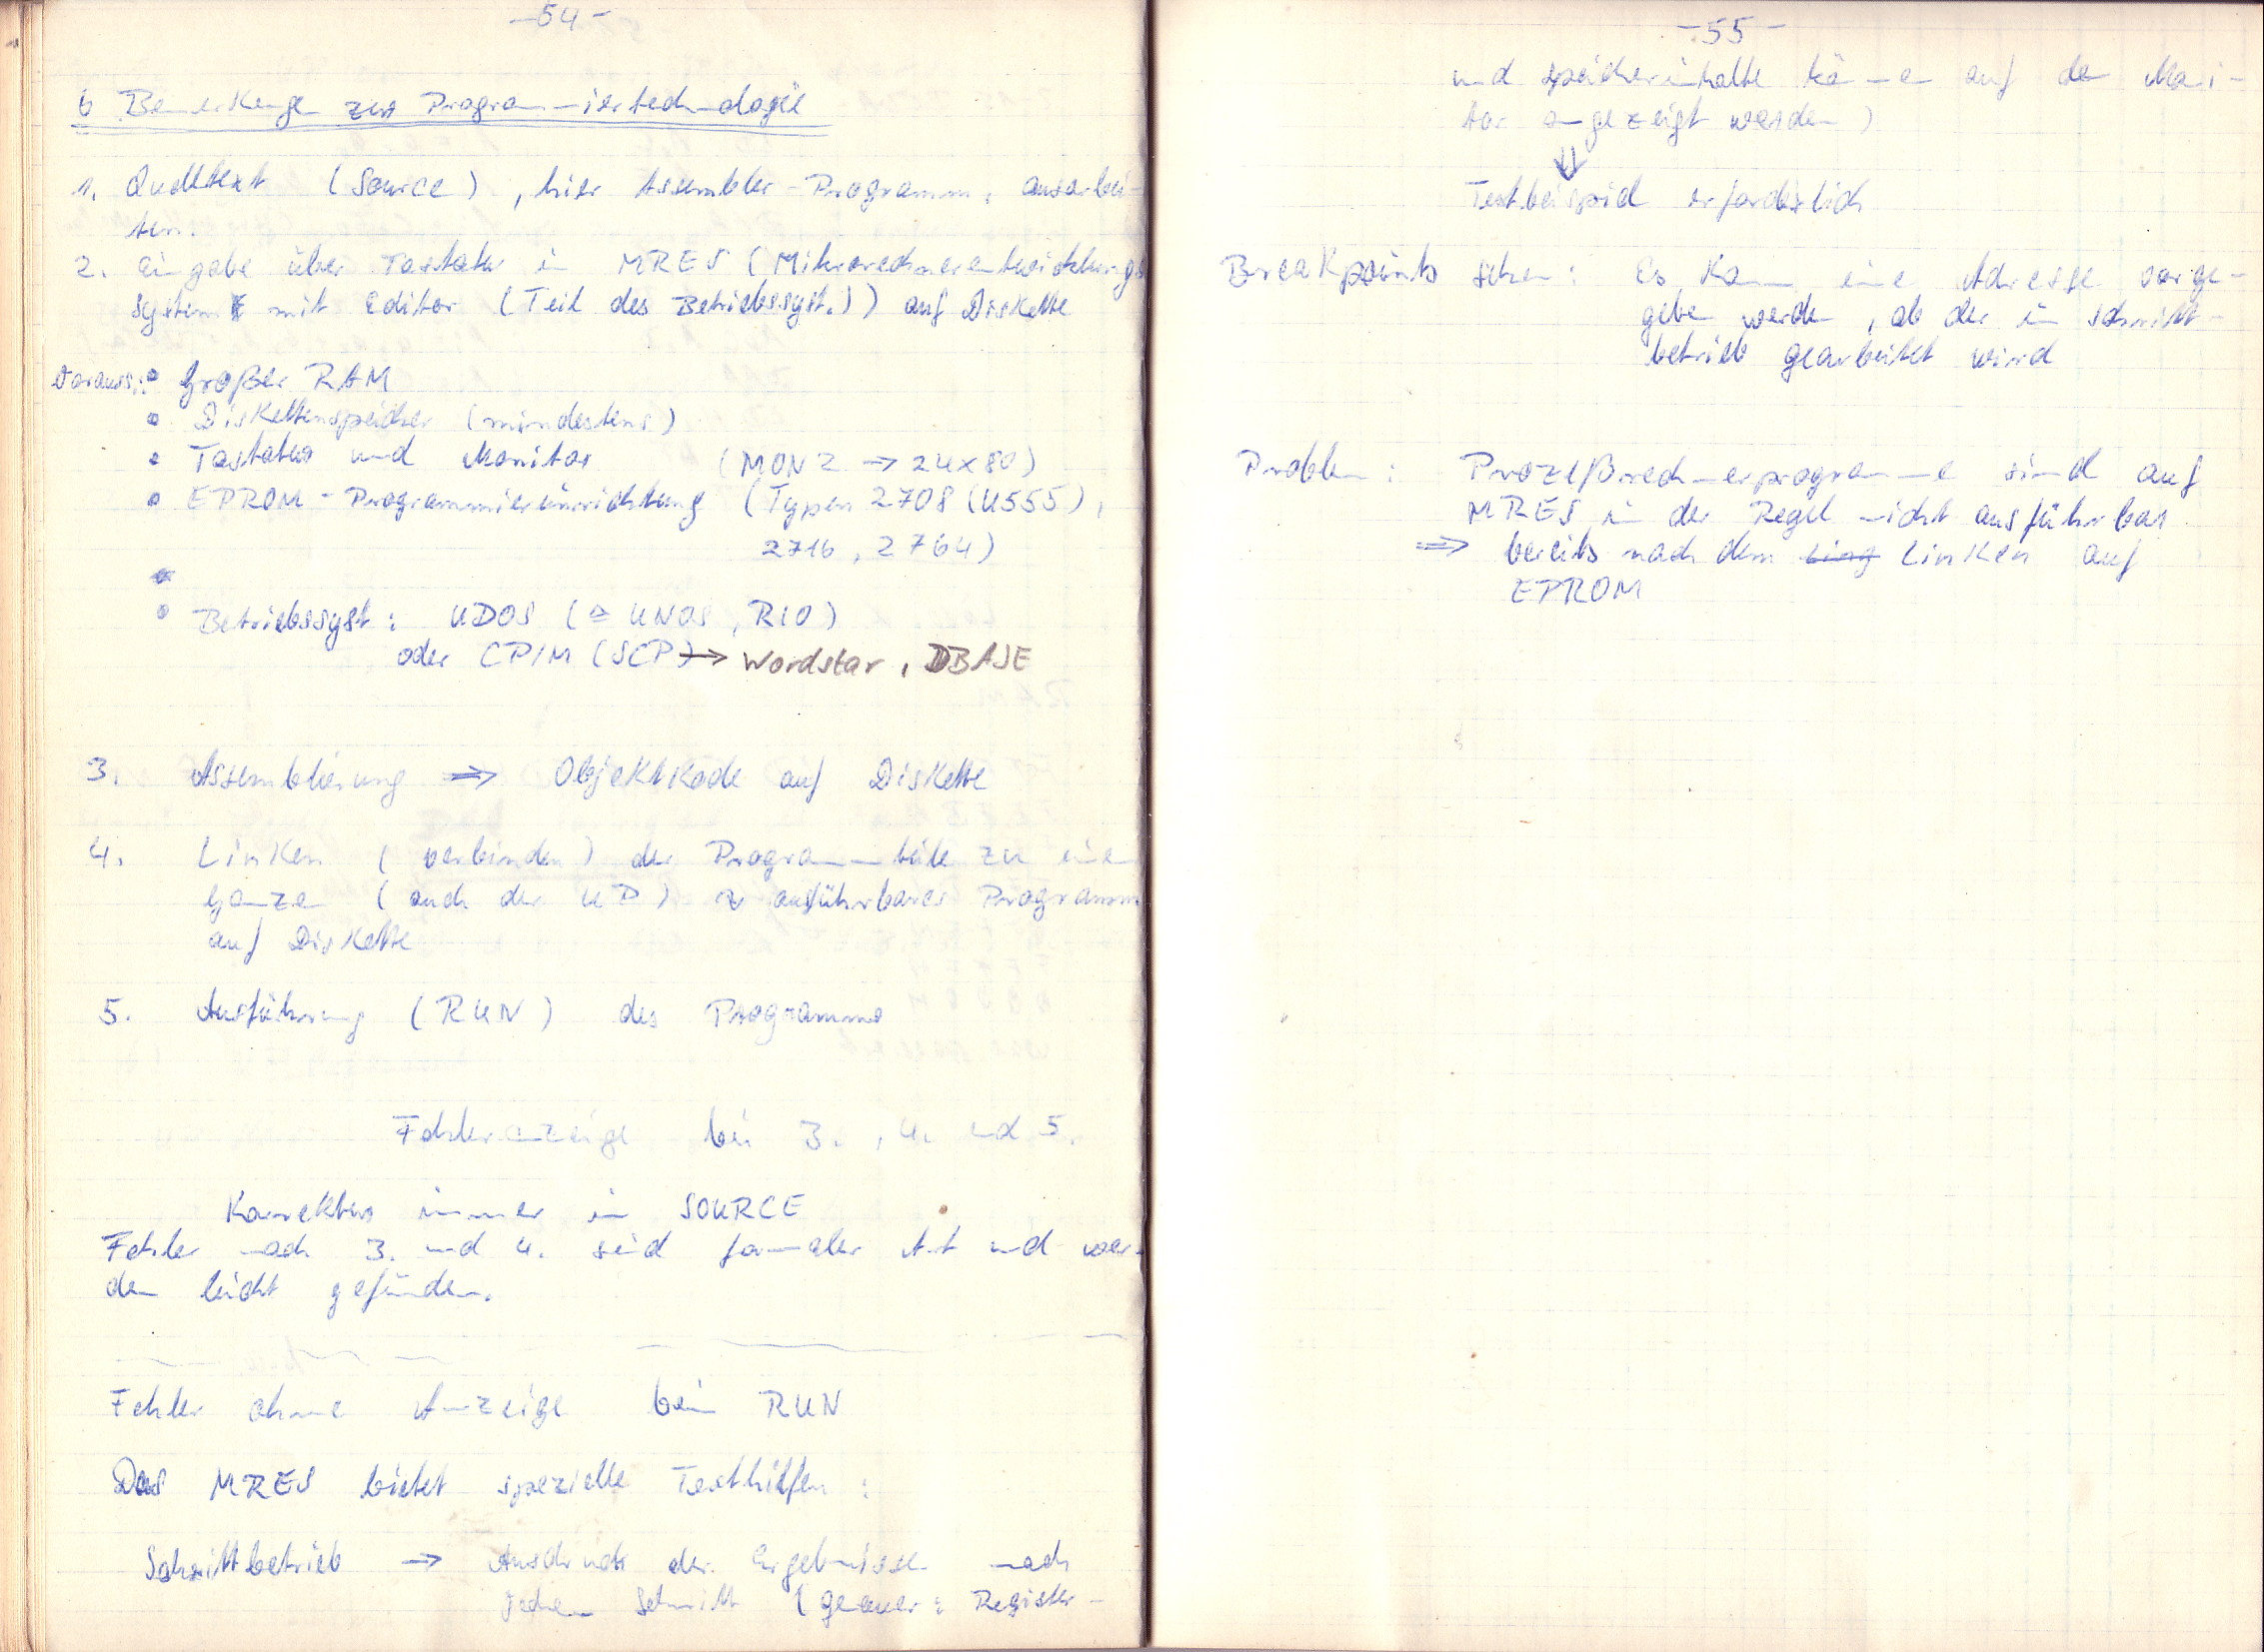 -54-
6 Bemerkungen zur Programmiertechnologie
1. Quelltext (Source), hier Assembler-Programm, ausarbei-
ten.
2. Eingabe über Tastatur in MRES (Mikrorechnerentwicklungs
system mit Editor (Teil des Betriebssyst.)) auf Diskette
Vorauss.: • Großer RAM
• Diskettenspeicher (mindestens)
• Tastatur und Monitor (MON 2 → 24x80)
• EPROM-Programmiereinrichtung (Typen 2708 (U555),
2716, 2764)
• Betriebssyst: UDOS (≙ UNOS, RIO)
oder CP/M (SCP) → Wordstar, DBASE
3. Assemblierung ⇒ Objektkode auf Diskette
4. Linken (verbinden) der Programmteile zu einem
Ganzen (auch der UP) ausführbares Programm
auf Diskette
5. Ausführung (RUN) des Programms
Fehleranzeige bei 3., 4. und 5.
Korrektur immer in SOURCE
Fehler nach 3. und 4. sind formaler Art und wer-
den leicht gefunden.
Fehler ohne Anzeige bei RUN
Das MRES bietet spezielle Testhilfen:
Schrittbetrieb → Ausdruck der Ergebnisse nach
jedem Schritt (genauer: Register-
-55-
und Speicherinhalte können auf dem Moni-
tor angezeigt werden)
⇓
Testbeispiel erforderlich
Breakpoints setzen: Es kann eine Adresse vorge-
geben werden, ab der im Schritt-
betrieb gearbeitet wird
Problem: Prozeßrechnerprogramme sind auf
MRES in der Regel nicht ausführbar
⇒ bereits nach dem Ling Linken auf
EPROM